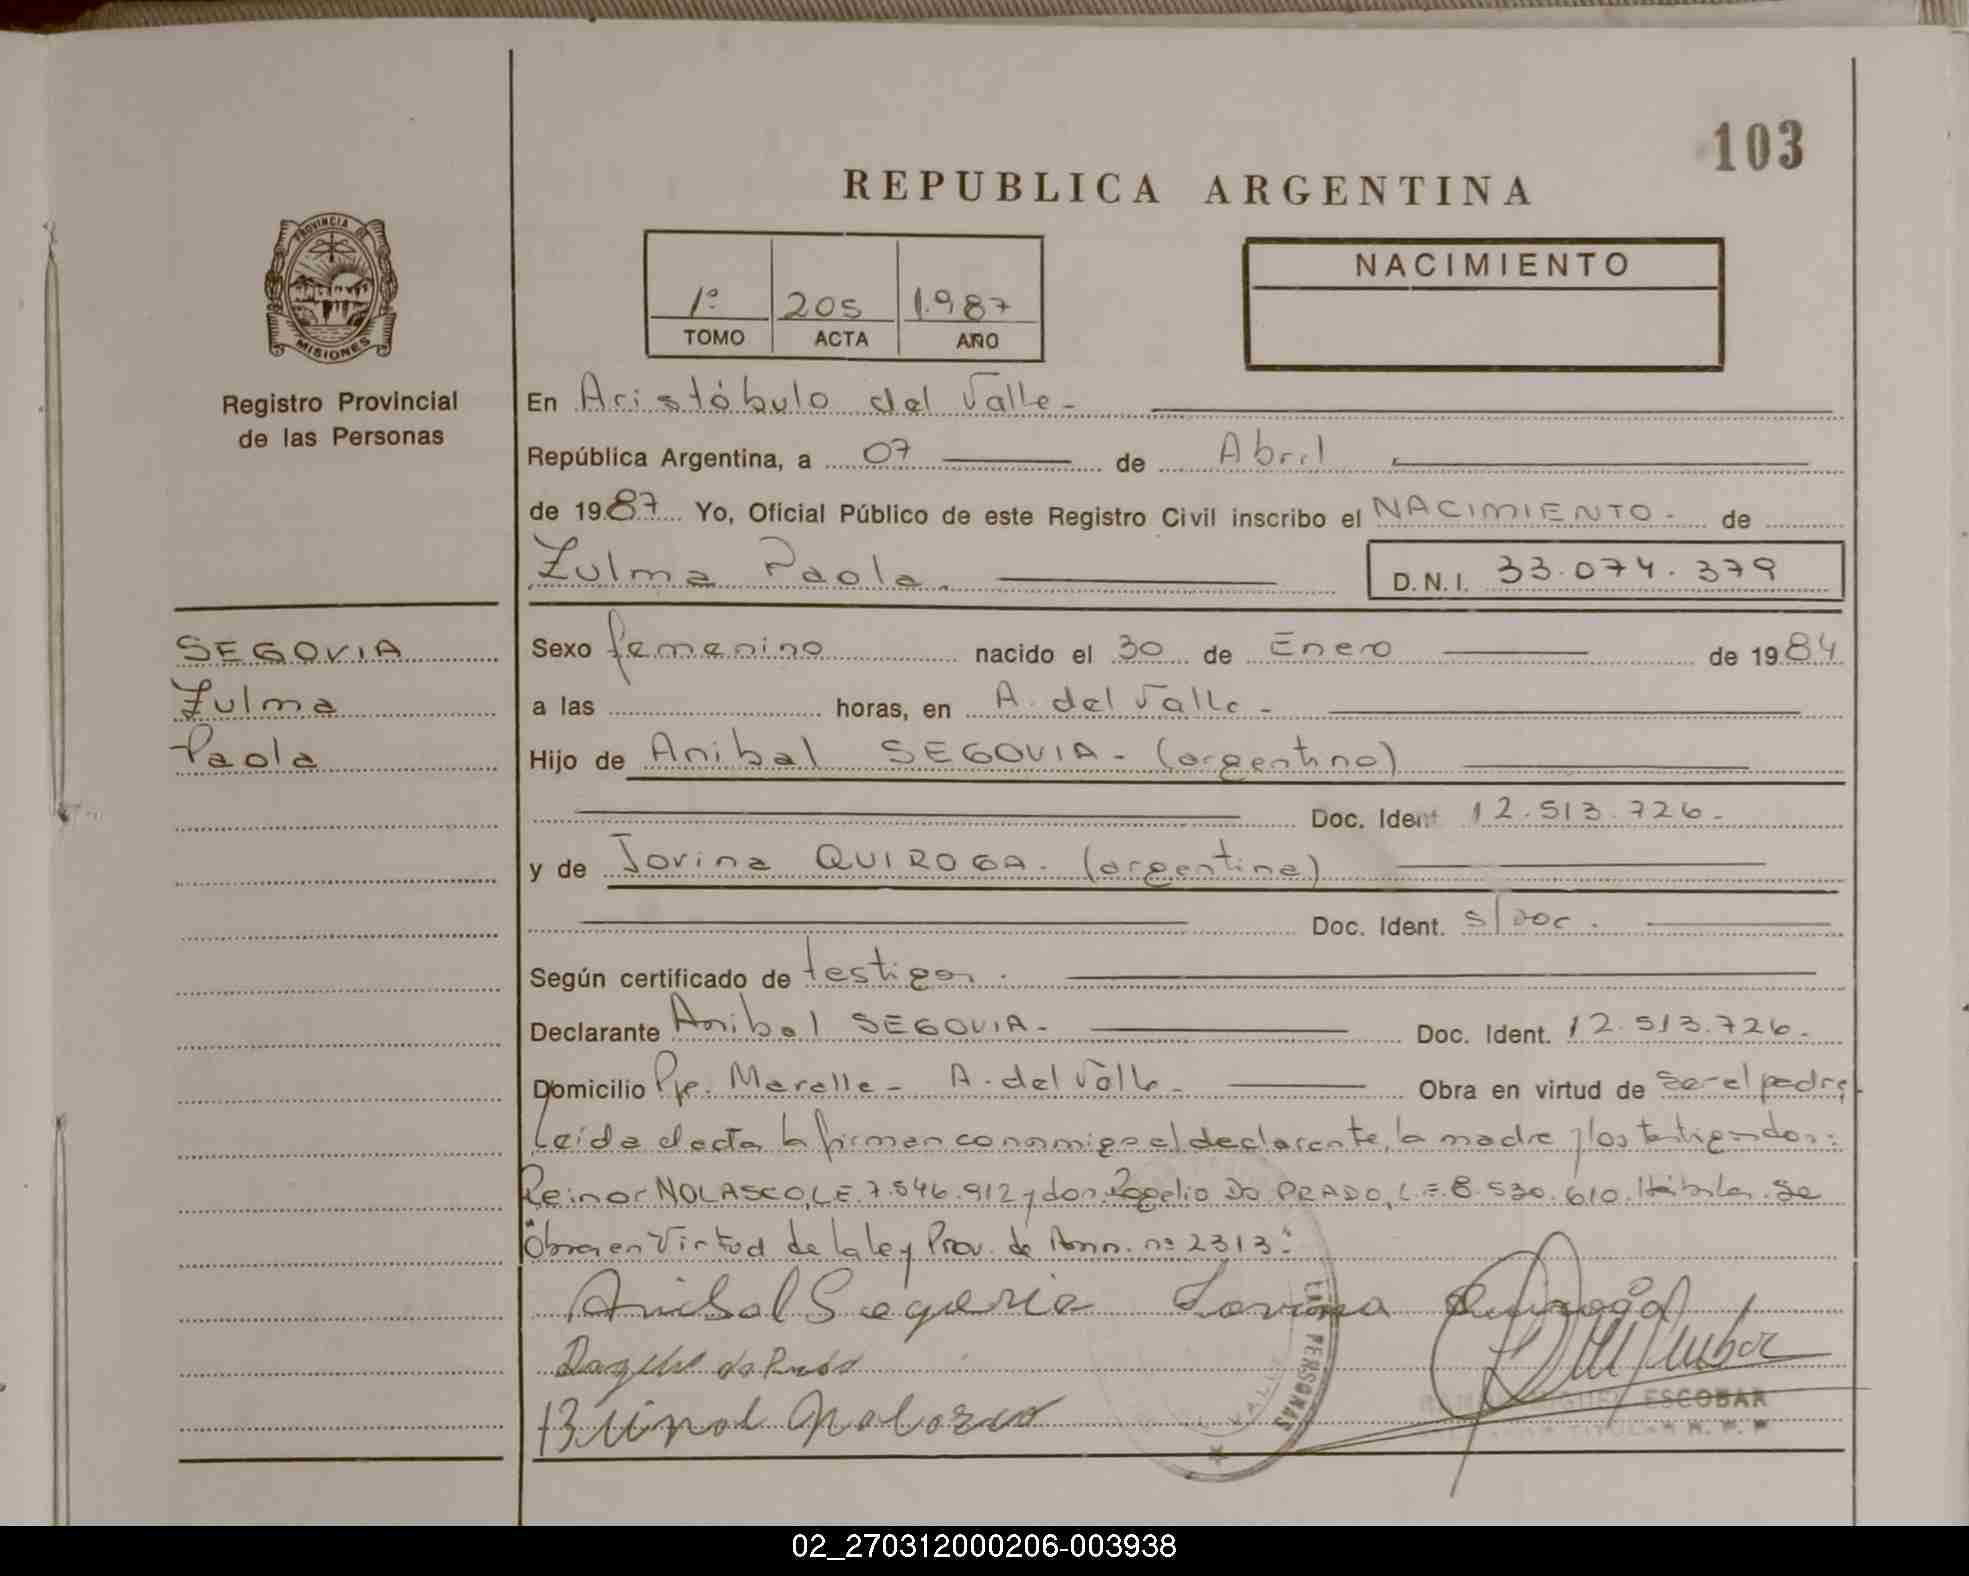 103
REPUBLICA ARGENTINA
PROVINCIA DE
MISIONES
Registro Provincial
de las Personas
1º 205 1.987
TOMO ACTA AÑO
NACIMIENTO
En Aristóbulo del Valle-
República Argentina, a 07 de Abril
de 1987 Yo, Oficial Público de este Registro Civil inscribo el NACIMIENTO- de
Zulma Paola.
D.N.I. 33.074.379
SEGOVIA
Zulma
Paola
Sexo femenino nacido el 30 de Enero de 1984
a las horas, en A. del Valle-
Hijo de Anibal SEGOVIA- (argentino)
Doc. Ident 12.513.726-
y de Jovina QUIROGA. (argentina)
Doc. Ident. s/Doc.
Según certificado de testigos.
Declarante Anibal SEGOVIA- Doc. Ident. 12.513.726-
Domicilio Pje. Maralle- A. del Valle- Obra en virtud de ser el padre-
Leída el acta, la firman conmigo el declarante, la madre y los testigos don:
Reinor NOLASCO, L.E. 7.546.912 y don Rogelio DO PRADO, L.E. 8.530.610. Hábiles. Se
"Obra en Virtud de la ley Prov. de Amn. nº 2313."
Anibal Segovia Quiroga
LAS PERSONAS
VALLE
ESCOBAR
TITULAR R. P. P
02_270312000206-003938